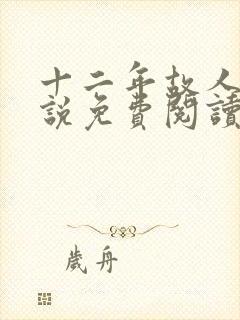 十二年故人
說免費閱讀
歲舟